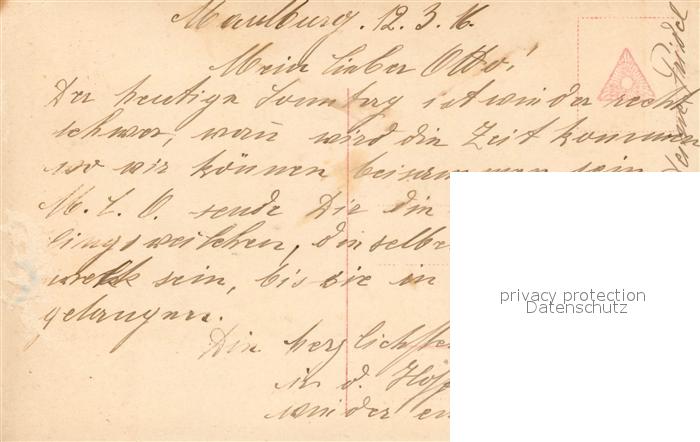 Maulburg. 12.3.16.
Mein lieber Otto!
Der heutige Sonntag ist wieder recht
schwer, wan wird die Zeit kommen
wo wir können beisammen sein
M. L. O. sende Dir die
lingsveilchen, dieselbe
welk sein, bis sie in
gelangen.
Die herzlichste
in d. Hoff
wieder
Friedel
privacy protection
Datenschutz